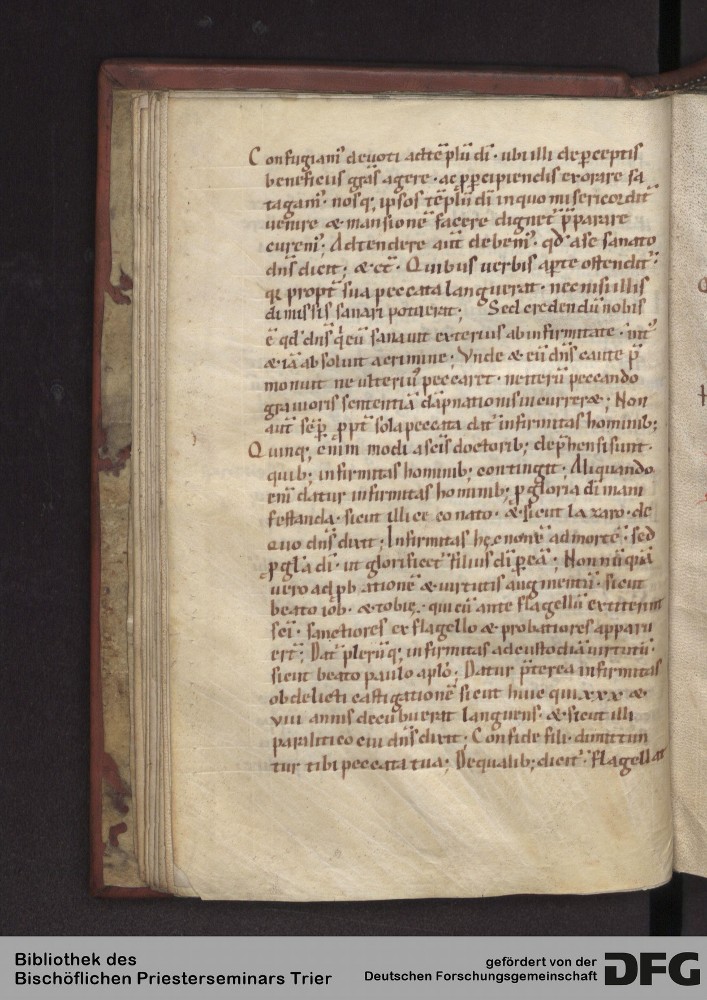 Confugiam᷒ deuoti ad tēplū dī · ubi illi de p̄ceptis
beneficiis grās agere · ac p̲ p̲cipiendis exorare sa
tagam᷒ · nosq; ipsos tēplū dī in quo misericordit̄
uenire & mansionē facere dignet̄ p̄parare
curem᷒; Adtendere aut̄ debem᷒ · qd̄ a se sanato
dn̄s dicit; & cet̄ · Quibus uerbis ap̲te ostendit̄ ·
q̄ propt̄ sua peccata languerat · nec nisi illis
dimissis sanari potuerit; Sed credendū nobis
ē qd̄ dn̄s q̇ eū sanauit exterius ab infirmitate · int᷒
& iā absoluit a crimine; Vnde & eū dn̄s caute p̄
monuit ne ulteri᷒ peccaret · ne iterū peccando
grauioris sententiā dāpnationis incurrer&; Non
aut̄ sēp̲ p̲pt̄ sola peccata dat̄ infirmitas hominib;
Quinq; enim modi a scīs doctorib; dep̄hensi sunt ·
quib; infirmitas hominib; contingit; Aliquando
enī datur infirmitas hominib; p̲ gloria dī mani
festanda · sicut illi cęco nato · & sicut lazaro · de
quo dn̄s dixit; Infirmitas hęc non ē ad mortē · sed
p̲ glā dī · ut glorificet̄ filius dī p̲ eā; Non nūquā
uero ad p̲bationē & uirtutis augmentū · sicut
beato iob · & tobię · qui cū ante flagellū extiterint
scī · sanctiores ex flagello & probatiores apparu
ert̄; Dat̄ plerūq; infirmitas ad custodiā uirtutū ·
sicut beato paulo aplō; Datur p̄terea infirmitas
ob delicti castigationē sicut huic qui xxx &
viii annis decubuerat languens · & sicut illi
paralitico cui dn̄s dixit; Confide fili · dimittun
tur tibi peccata tua; De qualib; dicit̄ · Flagellat
Bibliothek des
Bischöflichen Priesterseminars Trier
gefördert von der
Deutschen Forschungsgemeinschaft
DFG